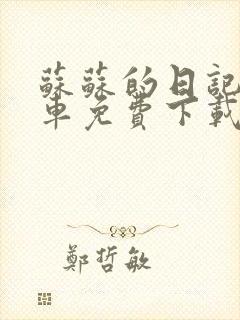 蘇蘇的日記
車免費下載
鄭哲敏